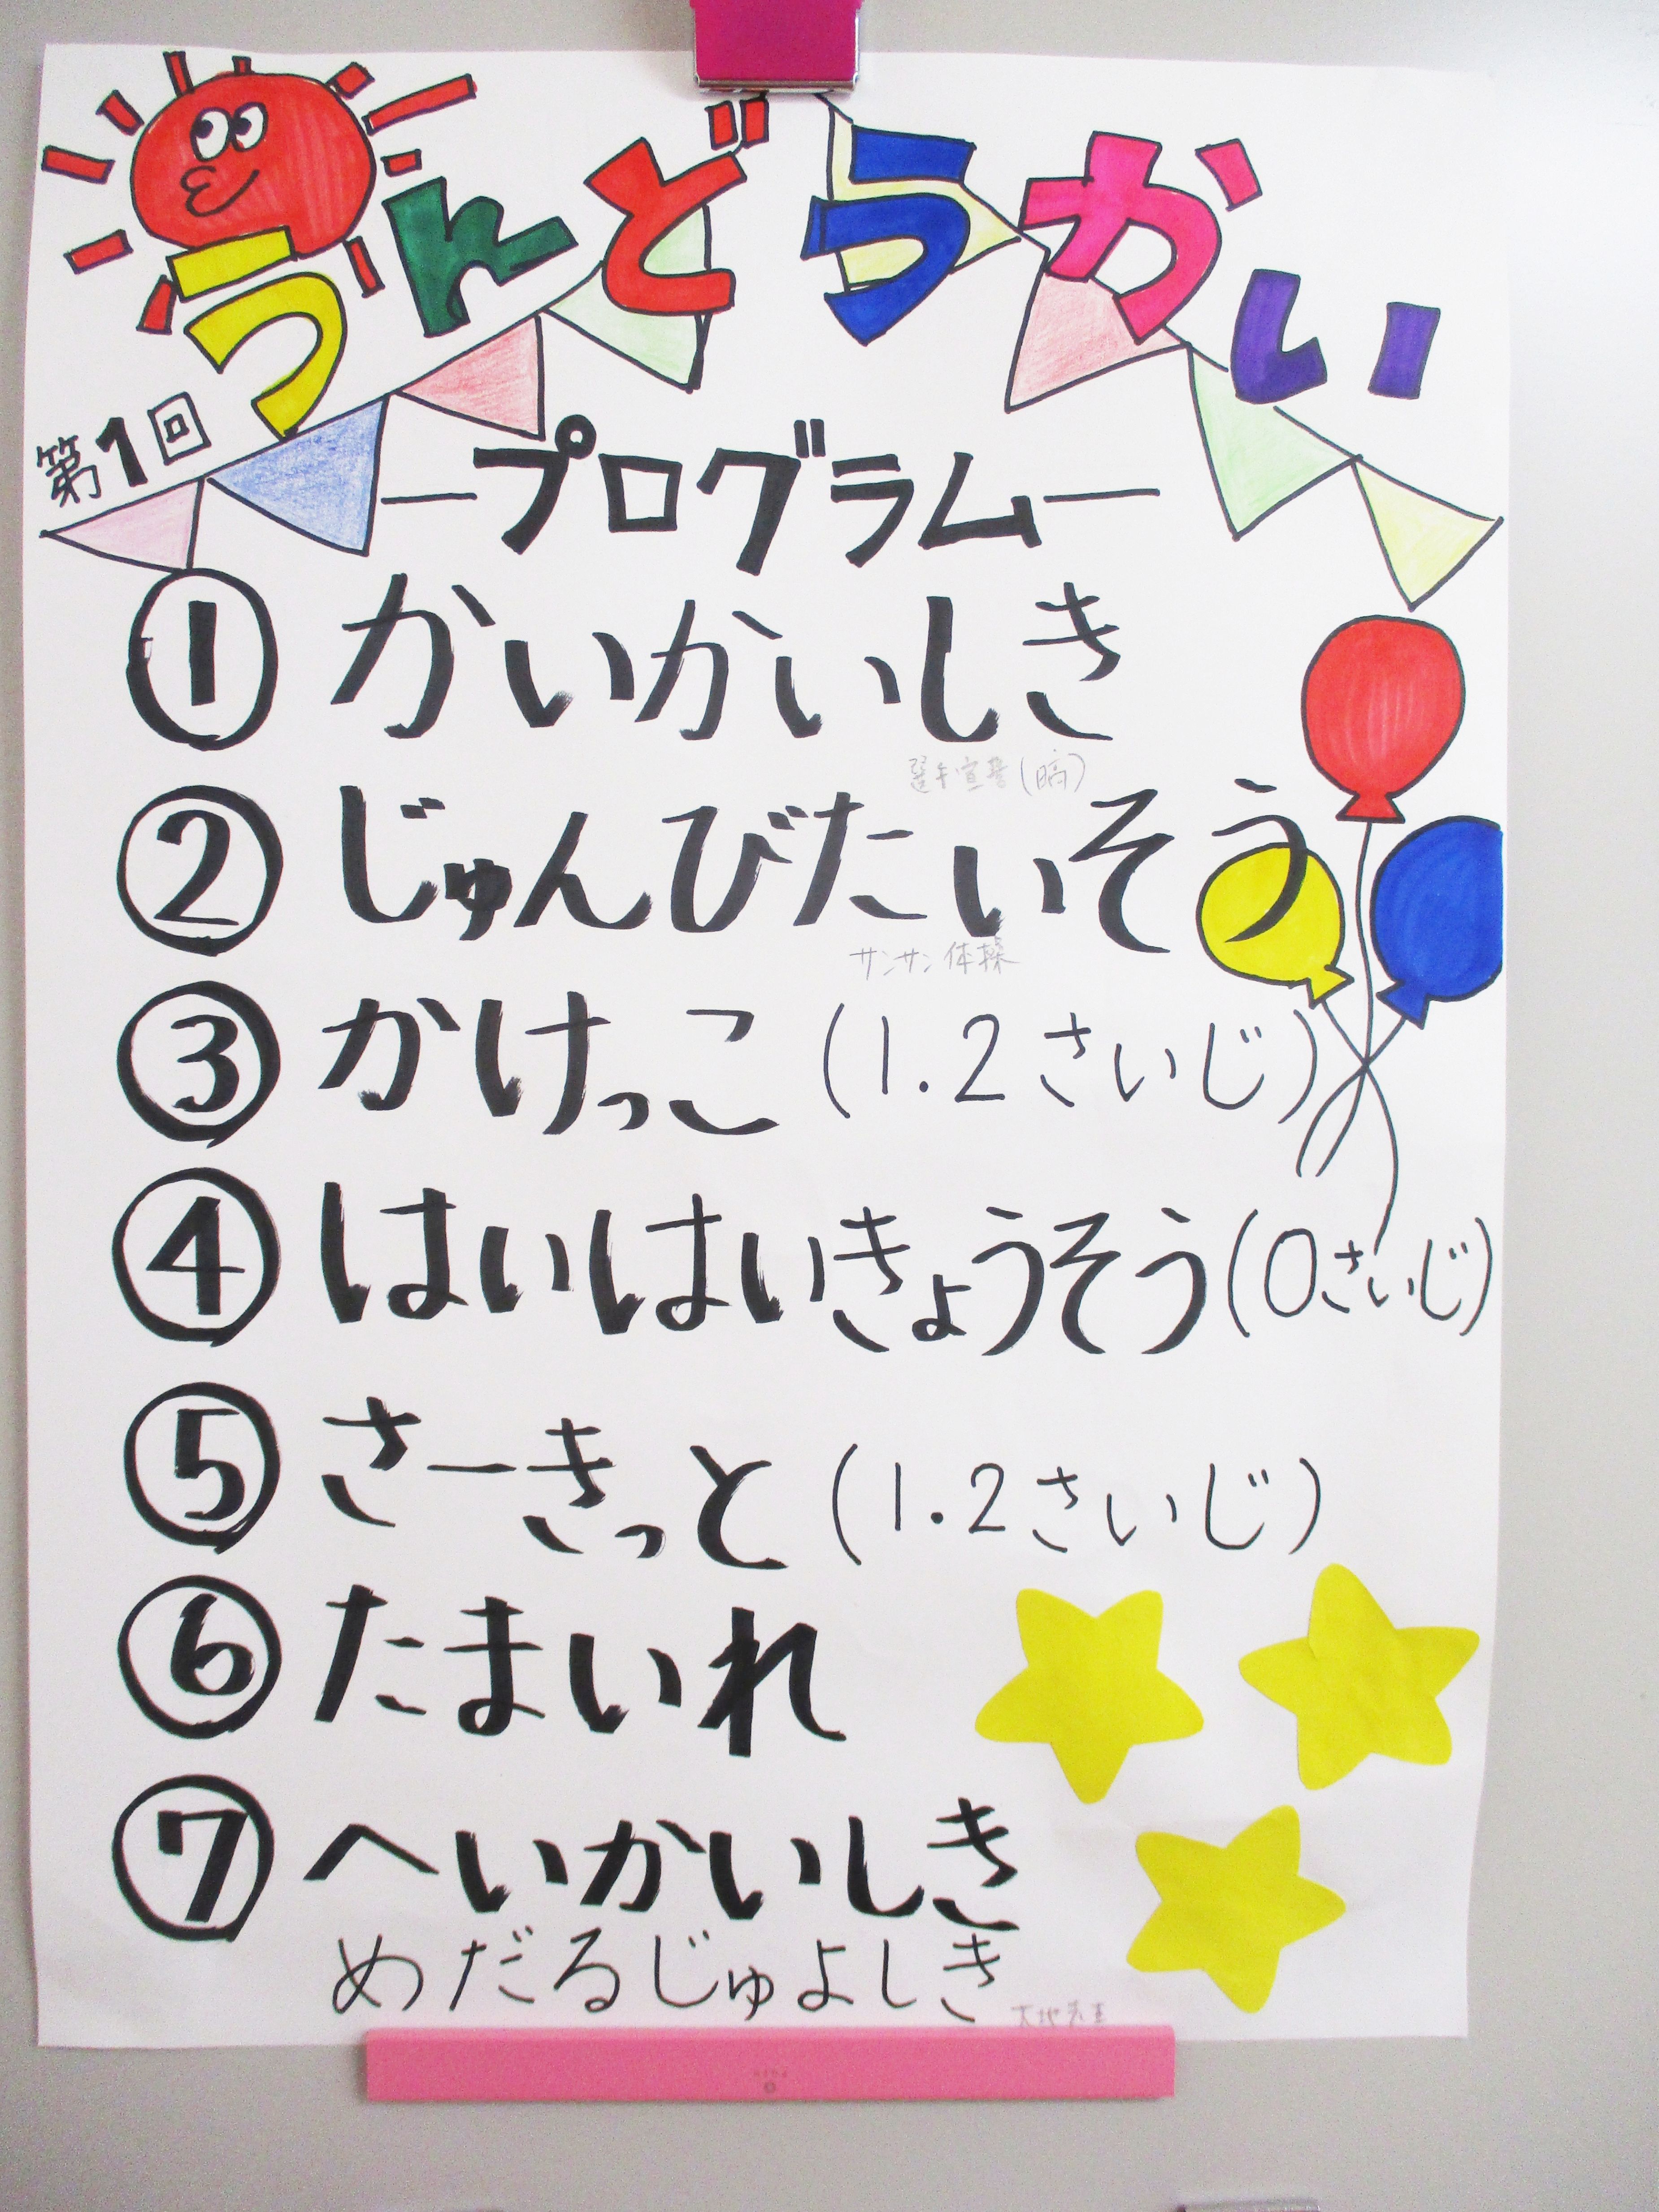 うんどうかい
第1回
―プログラム―
① かいかいしき
選手宣誓
② じゅんびたいそう
サンサン体操
③ かけっこ (1.2さいじ)
④ はいはいきょうそう(0さいじ)
⑤ さーきっと (1.2さいじ)
⑥ たまいれ
⑦ へいかいしき
めだるじゅよしき